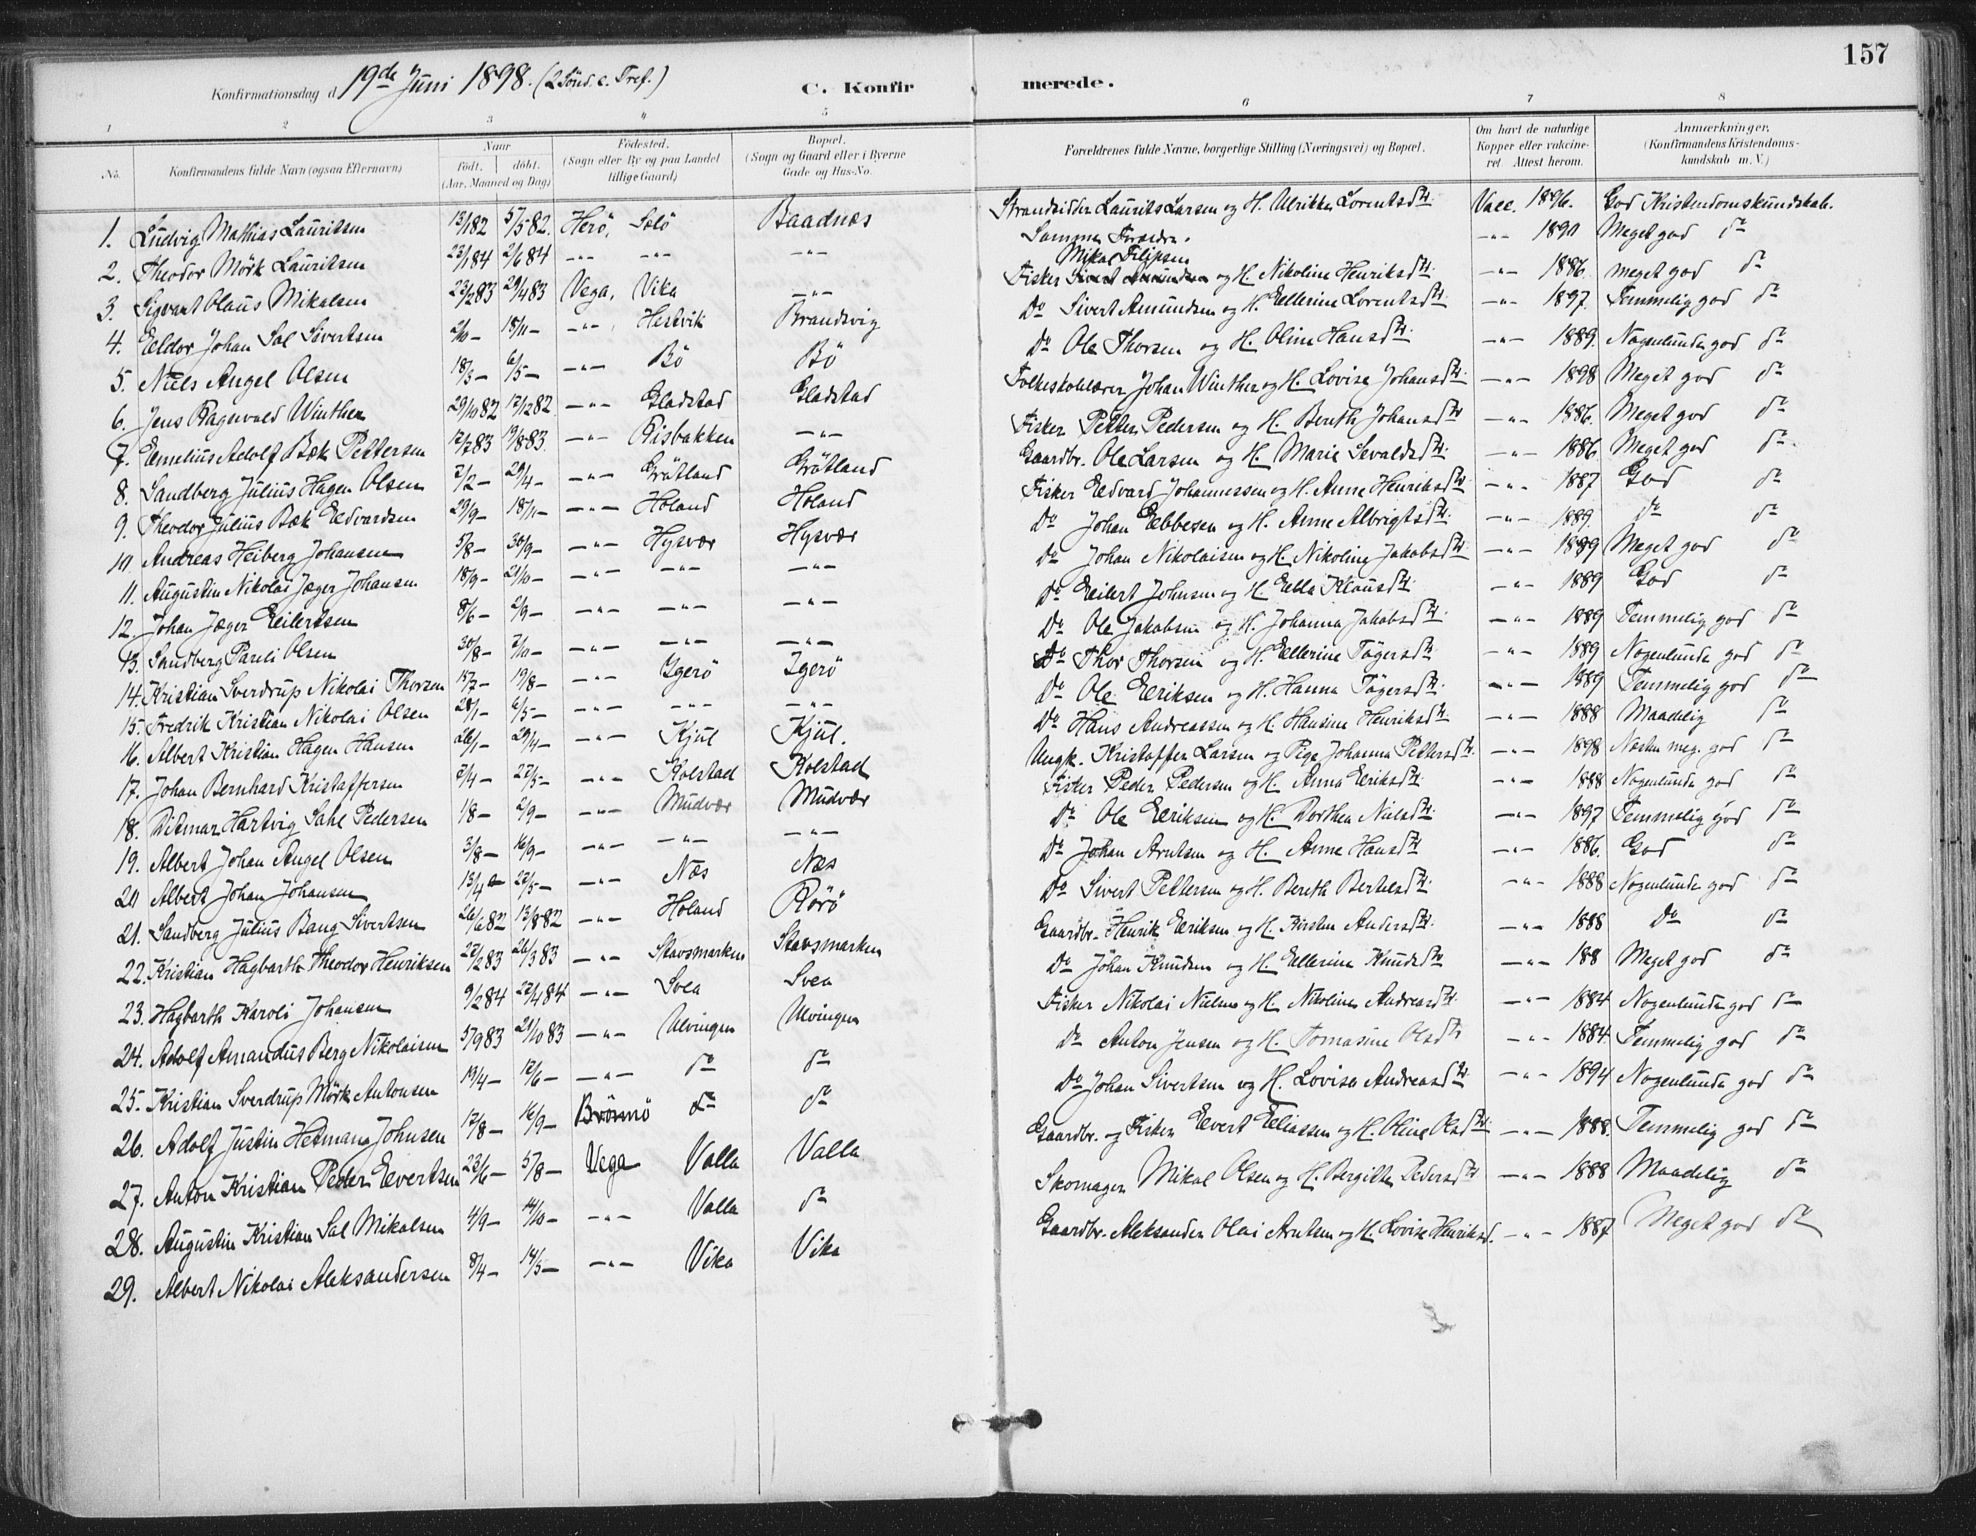 157
Konfirmationsdag d. 19de Juni 1898. (2 Sönd. e. Tref.) C. Konfirmerede.
1 2 3 4 5 6 7 8
No. Konfirmandens fulde Navn (ogsaa Efternavn) Naar födt. döbt. (Aar, Maaned og Dag) Födested. (Sogn eller By og paa Landet tillige Gaard) Bopæl. (Sogn og Gaard eller i Byerne Gade og Hus-No. Forældrenes fulde Navne, borgerlige Stilling (Næringsvei) og Bopæl. Om havt de naturlige Kopper eller vakcineret. Attest herom. Anmærkninger. (Konfirmandens Kristendomskundskab m. V.)
1. Ludvig Mathias Lauritsen 13/1 82 5/5 82. Herö, Solö Baadnæs Strandsidder Laurits Larsen og H. Ulrikke Lorentsdtr. Vacc. 1896. God Kristendomskundskab.
2. Theodor Mörk Lauritsen 23/1 84 2/6 84 -"- -"- -"- Samme Foreldre. -"- 1890 Meget god do
3. Sigvart Olaus Mikalsen 23/2 83 29/4 83 Vega, Vika -"- Fisker Mikal Filipsen og H. Nikoline Henriksdtr. -"- 1886. meget god do
4. Eeldor Johan Sal Sivertsen 2/10 - 18/11 - -"- Hestvik Brandsvig Do Sivert Amundsen og H. Ellerine Lorentsdtr. -"- 1897. Temmelig god do
5. Niels Angel Olsen 18/3 - 6/5 - -"- Bö Bö Do Ole Thorsen og H. Oline Hansdtr. -"- 1889. Nogenlunde god do
6. Jens Ragnvald Winther 29/10 82 17/12 82 -"- Gladstad Gladstad Folkeskolelærer Johan Winther og H. Lovise Johansdtr. -"- 1898 Meget god do
7. Emelius Adolf Bæk Pettersen 12/7 83 19/8 83. -"- Risbakken -"- Fisker Petter Pedersen og H. Bereth Johansdtr. -"- 1886. Meget god do
8. Sandberg Julius Hagen Olsen 2/2 - 29/4 - -"- Grötland Grötland Gaardbr. Ole Larsen og H. Marie Sevaldsdtr. -"- 1886 Meget god do
9. Theodor Julius Bæk Edvardsen 29/9 - 18/11 - -"- Holand Holand Fisker Edvard Johannessen og H. Anne Henriksdtr. -"- 1887 God do
10 Andreas Heiberg Johansen 5/8 - 30/9 - -"- Hysvær Hysvær Do Johan Ebbesen og H. Anne Albrigtsdtr. -"- 1889. do do
11. Augustin Nikolai Jæger Johansen 18/9 - 21/10 - -"- -"- -"- Do Johan Nikolaisen og H. Nikoline Jakobsdtr. -"- 1889 Meget god do
12. Johan Jæger Eilertsen 8/6 - 2/9 - -"- -"- -"- Do Eilert Johnsen og H. Ebba Klausdtr. -"- 1889 God do
13. Sandberg Pareli Olsen 30/8 - 7/10 - -"- -"- -"- Do Ole Jakobsen og H. Johanna Jakobsdtr. -"- 1889 Temmelig god do
14. Kristian Sverdrup Nikolai Thorsen 15/7 - 19/8 - -"- Igerö Igerö Do Thor Thorsen og H. Ellerine Tögersdtr. -"- 1889 Nogenlunde god do
15. Fredrik Kristian Nikolai Olsen 28/1 - 6/5 - -"- -"- -"- Do Ole Eriksen og H. Hanna Tögersdtr. -"- 1889 Temmelig god do
16. Albert Kristian Hagen Hansen 26/1 - 29/4 - -"- Kjul Kjul. Do Hans Andreassen og H. Hansine Henriksdtr. -"- 1888 Maadelig do
17. Johan Bernhard Kristoffersen 2/4 - 27/5 - -"- Kolstad Kolstad Ungk. Kristoffer Larsen og Pige Johanna Pettersdtr. -"- 1898 Næsten meg. god do
18. Ditmar Hartvig Sahl Pedersen 1/8 - 2/9 - -"- Mudvær Mudvær Fisker Peder Pedersen og H. Anna Eriksdtr. -"- 1888 Nogenlunde god do
19. Albert Johan Angel Olsen 3/8 - 16/9 - -"- -"- -"- Do Ole Eriksen og H. Dorthea Nielsdtr. -"- 1897 Temmelig god do
20 Albert Johan Johansen 13/4 - 27/5 - -"- Næs Næs Do Johan Arntsen og H. Anne Hansdtr. -"- 1886. God do
21. Sandberg Julius Bang Sivertsen 26/6 82 13/8 82 -"- Holand Rörö Do Sivert Pettersen og H. Bereth Bertelsdtr. -"- 1888 Nogenlunde god do
22. Kristian Hagbarth Theodor Henriksen 27/2 83 26/3 83 -"- Stavsmarken Stavsmarken Gaardbr. Henrik Eriksen og H. Kirsten Andersdtr. -"- 1888 Do do
23. Hagbarth Karoli Johansen 9/2 84 27/4 84 -"- Svea Svea Do Johan Knudsen og H. Ellerine Knudsdtr. -"- 188 Meget god do
24. Adolf Amandus Berg Nikolaisen 5/9 83 21/10 83 -"- Ulvingen Ulvingen Fisker Nikolai Nielsen og H. Nikoline Andreasdtr. -"- 1884 Nogenlunde god do
25. Kristian Sverdrup Mörk Antonsen 19/4 - 17/6 - -"- do do Do Anton Jensen og H. Tomasine Olsdtr. -"- 1884. Temmelig god do
26. Adolf Justin Hetmann Johnsen 12/8 - 16/9 - Brönnö do do Do Johan Sivertsen og H. Lovise Andreasdtr. -"- 1894 Nogenlunde god do
27. Anton Kristian Peder Evertsen 23/6 - 5/8 - Vega Valla Valla Gaardbr. og Fisker Evert Eliassen og H. Oline Olsdtr. -"- 1888. Temmelig god do
28. Augustin Kristian Sal Mikalsen 4/9 - 14/10 - -"- Valla do Skomager Mikal Olsen og H. Bergitte Pedersdtr. -"- 1888 Maadelig do
29. Albert Nikolai Aleksandersen 8/4 - 14/5 - -"- Vika Vika Gaardbr. Aleksander Olai Arntsen og H. Lovise Henriksd. -"- 1887 Meget god do